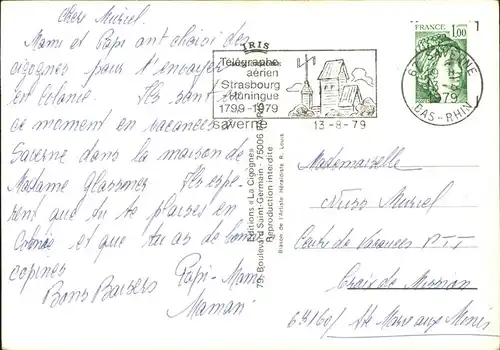 Chère Muriel.
Mamie et Papi ont choisi des
cigognes pour t'envoyer
en colonie. Ils sont en
ce moment en vacances à
Saverne dans la maison de
Madame Glassmer Ils espè-
rent que tu te plaises en
Colonie et que tu as de bonnes
copines
Bons Baisers Papi - Mamie
Maman
IRIS
Télégraphe
aérien
Strasbourg
Huningue
1799-1979
saverne
13-8-79
67 SAVERNE
BAS-RHIN
FRANCE
1,00
Editions « La Cigogne »
79, Boulevard Saint-Germain - 75006 PARIS
Reproduction interdite
Blason de l'Artiste Héraldiste R. Louis
Mademoiselle
Muriel
Centre de Vacances PTT
Croix de Mission
68160 / Ste Marie aux Mines